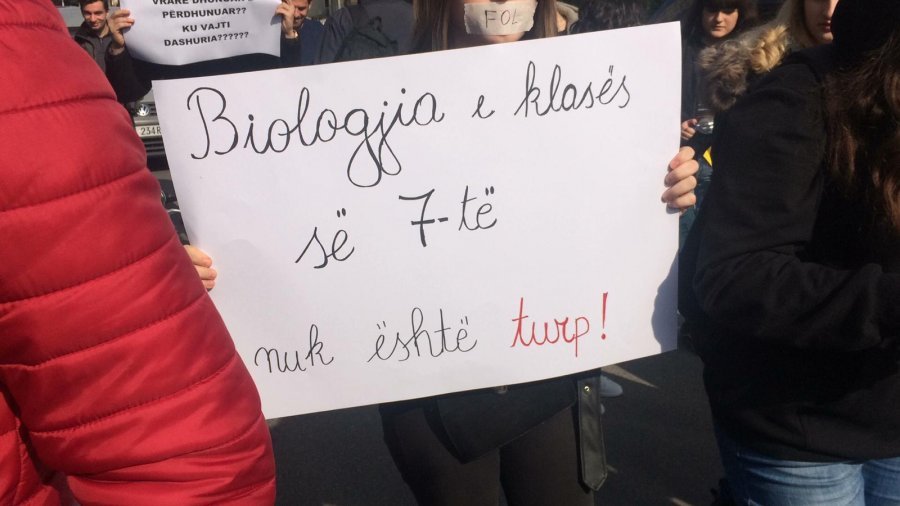 PËRDHUNUAR??
KU VAJTI
DASHURIA??????
FOL
Biologjia e klasës
së 7-të
nuk është turp!
234R